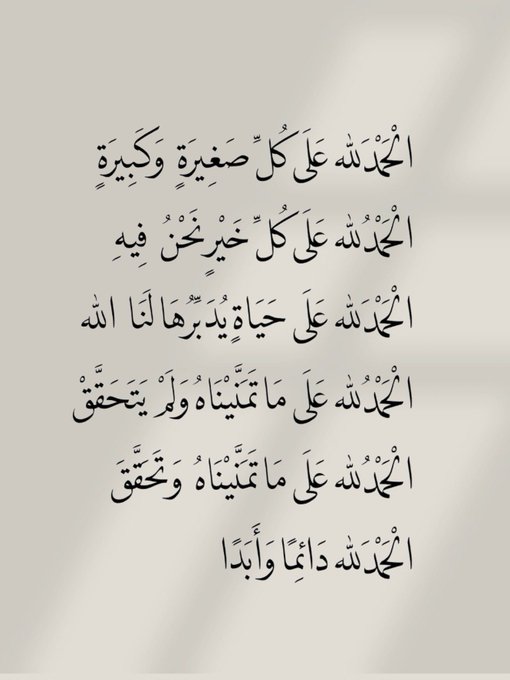 الْحَمْدَلله عَلَى كُلِّ صَغِيرَةٍ وَكَبِيرَةٍ
الْحَمْدُلله عَلَى كُلِّ خَيْرٍ نَحْنُ فِيهِ
الْحَمْدَلله عَلَى حَيَاةٍ يُدَبِّرُهَا لَنَا الله
الْحَمْدُلله عَلَى مَا تَمَنَّيْنَاهُ وَلَمْ يَتَحَقَّقْ
الْحَمْدُلله عَلَى مَا تَمَنَّيْنَاهُ وَتَحَقَّقَ
الْحَمْدَلله دَائِمًا وَأَبَدًا